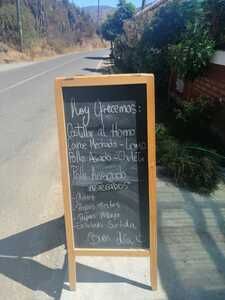 Hoy Ofrecemos:
Costillar al Horno
Carne Mechada - Lomo
Pollo Asado - Chuleta
Pollo Arvejado
AGREGADOS
- Arroz
- Papas Fritas
- Papas Mayo
- Ensalada Surtida